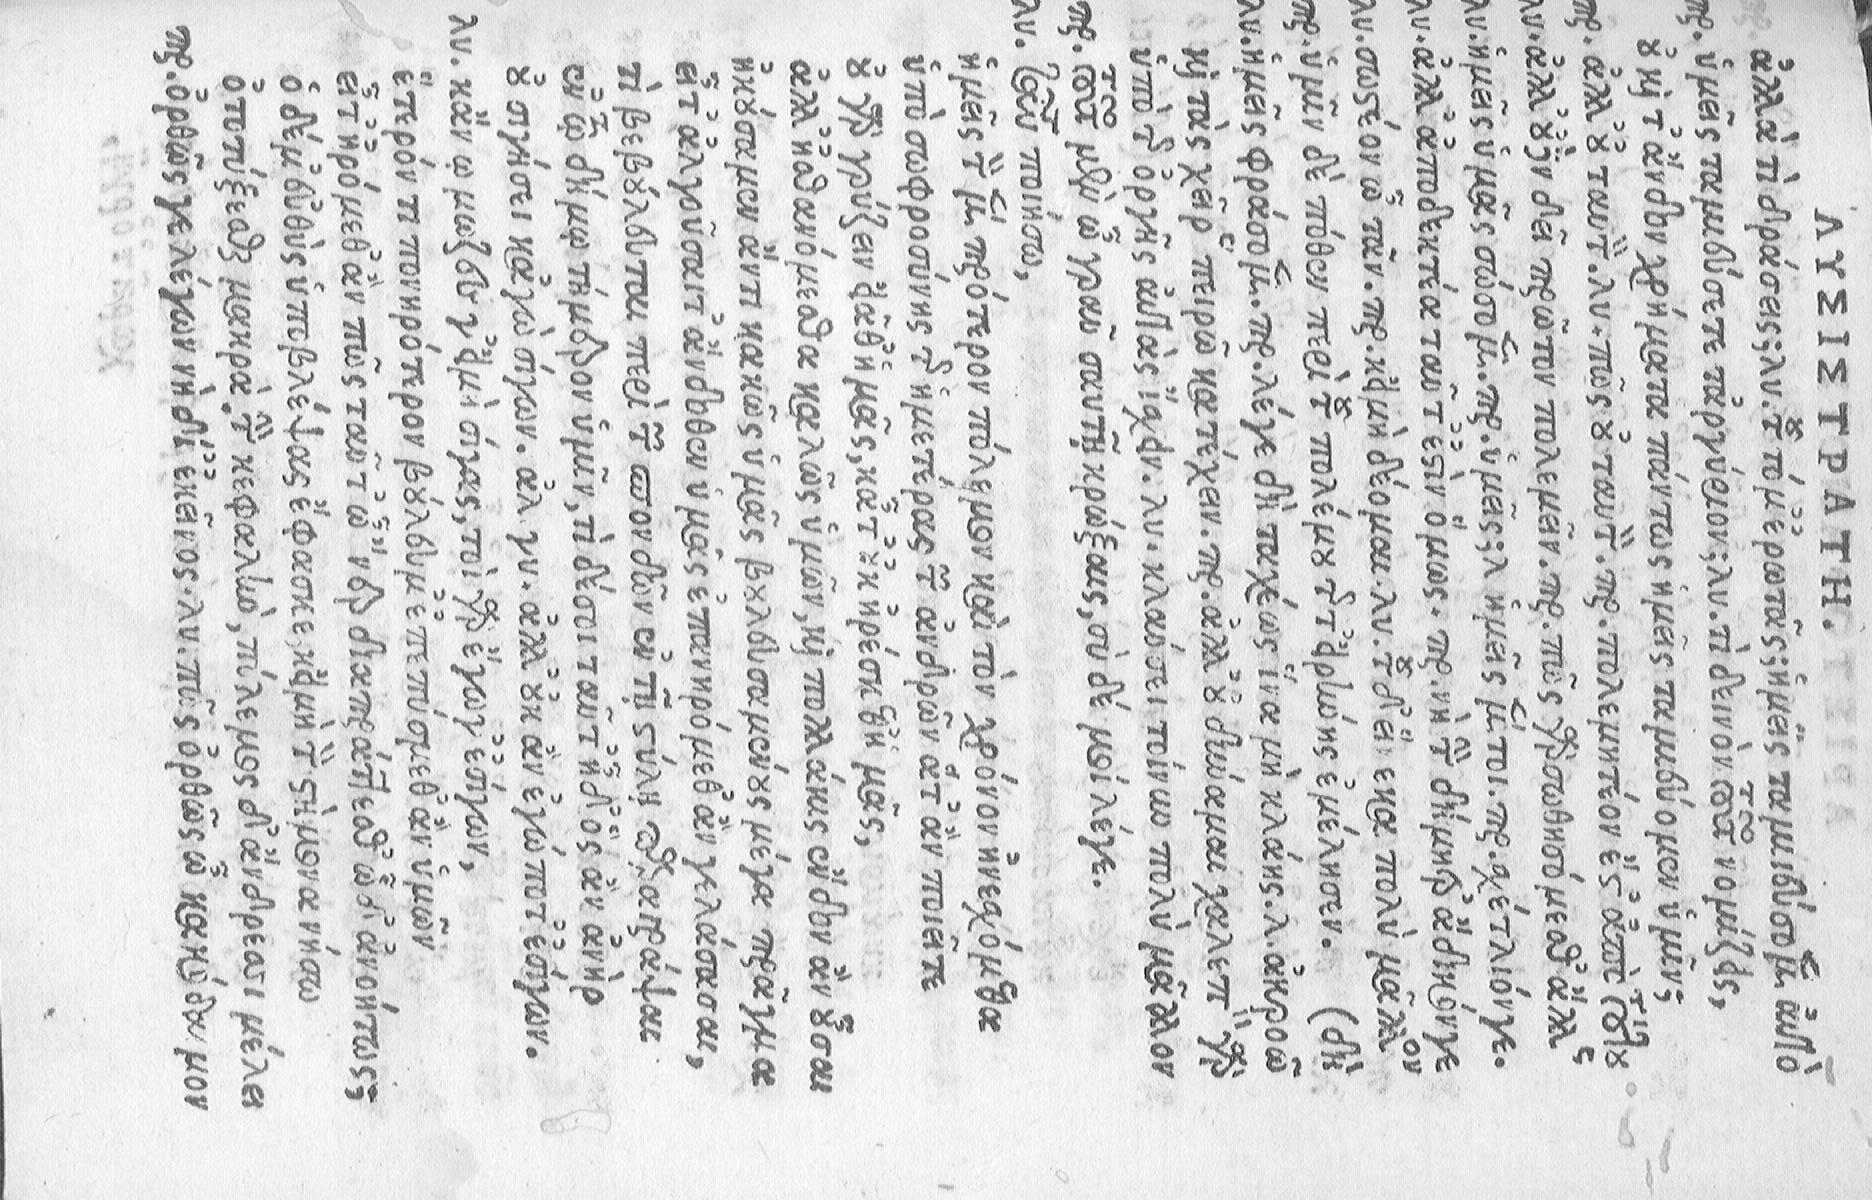 ΛΥΣΙΣΤΡΑΤΗ.
ἀλλὰ τί δράσεις; λυ. τοῦτό μ' ἐρωτᾷς; ἡμεῖς ταμιεύσομεν αὐτό
πρ. ὑμεῖς ταμιεύσετε τ' ἀργύριον; λυ. τί δεινὸν τοῦτο νομίζεις,
οὐ καὶ τ' ἄνδον χρήματα πάντως ἡμεῖς ταμιεύομεν ὑμῖν;
πρ. ἀλλ' οὐ ταυτ. λυ. πῶς οὐ ταυτ. πρ. πολεμητέον ἔστ' ἀπὸ τούτου
λυ. ἀλλ' οὐδὲν δεῖ πρῶτον πολεμεῖν. πρ. πῶς γὰρ σωθησόμεσθ' ἄλλως
λυ. ἡμεῖς ὑμᾶς σώσομεν. πρ. ὑμεῖς; λυ. ἡμεῖς μέντοι. πρ. σχέτλιόν γε.
λυ. ἀλλ' ἀποδεκτέα ταῦτ' ἐστὶν ὅμως. πρ. νὴ τὴν δήμητρ' ἄδικόν γε
λυ. σωστέον ὦ τᾶν. πρ. κοὐ μὴ δέομαι. λυ. τοῦδ' εἵνεκα πολὺ μᾶλλον
πρ. ὑμῖν δὲ πόθεν περὶ τοῦ πολέμου τῆς τ' εἰρήνης ἐμέλησεν. (δή
λυ. ἡμεῖς φράσομεν. πρ. λέγε δὴ ταχέως ἵνα μὴ κλάῃς. λυ. ἀκροῶ
καὶ τὰς χεῖρ' πειρῶ κατέχειν. πρ. ἀλλ' οὐ δύναμαι χαλεπὸν γὰρ
ὑπὸ τῆς ὀργῆς αὐτὰς ἴσχειν. λυ. κλαύσει τοίνυν πολὺ μᾶλλον
πρ. τοῦτο μὲν ὦ γραῦ σαυτῇ κρώξαις, σὺ δέ μοι λέγε.
λυ. ταῦτα ποιήσω,
ἡμεῖς τὸν μὲν πρότερον πόλεμον καὶ τὸν χρόνον ἠνεσχόμεθα
ὑπὸ σωφροσύνης τῆς ἡμετέρας τῶν ἀνδρῶν ἅττ' ἂν ποιεῖτε
οὐ γὰρ γρύζειν εἰᾶθ' ἡμᾶς, καίτ' οὐκ ἠρέσκεθ' ἡμᾶς,
ἀλλ' ᾐσθανόμεσθα καλῶς ὑμῶν, καὶ πολλάκις ἔνδον ἂν οὖσαι
ἠκούσαμεν ἄν τι κακῶς ὑμᾶς βουλευσαμένους μέγα πρᾶγμα
εἶτ' ἀλγοῦσαι τ' ἄνδοθεν ὑμᾶς ἐπανηρόμεθ' ἂν γελάσασαι,
τί βεβούλευται περὶ τῶν σπονδῶν ἐν τῇ στήλῃ παραγράψαι
ἐν τῷ δήμῳ τήμερον ὑμῖν, τί δέ σοι ταῦτ' ἦ δ' ὃς ἂν ἀνὴρ
οὐ σιγήσει κᾀγὼ σίγων. ἀλ. γυ. ἀλλ' οὐκ ἂν ἐγώ ποτ' ἐσίγων.
λυ. κἂν ᾤμωζες γ' εἰ μὴ σίγας, τοὶ γὰρ ἔγωγ' ἐσίγων,
ἕτερόν τι πονηρότερον βούλευμ' ἐπεπύσμεθ' ἂν ὑμῶν
εἶτ' ἠρόμεθ' ἂν πῶς ταῦτ' ὦ 'νερ διαπράττεσθ' ὧδ' ἀνοήτως;
ὁ δέ μ' εὐθὺς ὑποβλέψας ἔφασκε, κεἰ μὴ τὸν στήμονα νήσω
ὀτοτύξεσθαι μακρὰ. τὴν κεφαλὴν, πόλεμος δ' ἄνδρεσσι μελήσει
πρ. ὀρθῶς γε λέγων νὴ δί' ἐκεῖνος. λυ. πῶς ὀρθῶς ὦ κακόδαιμον